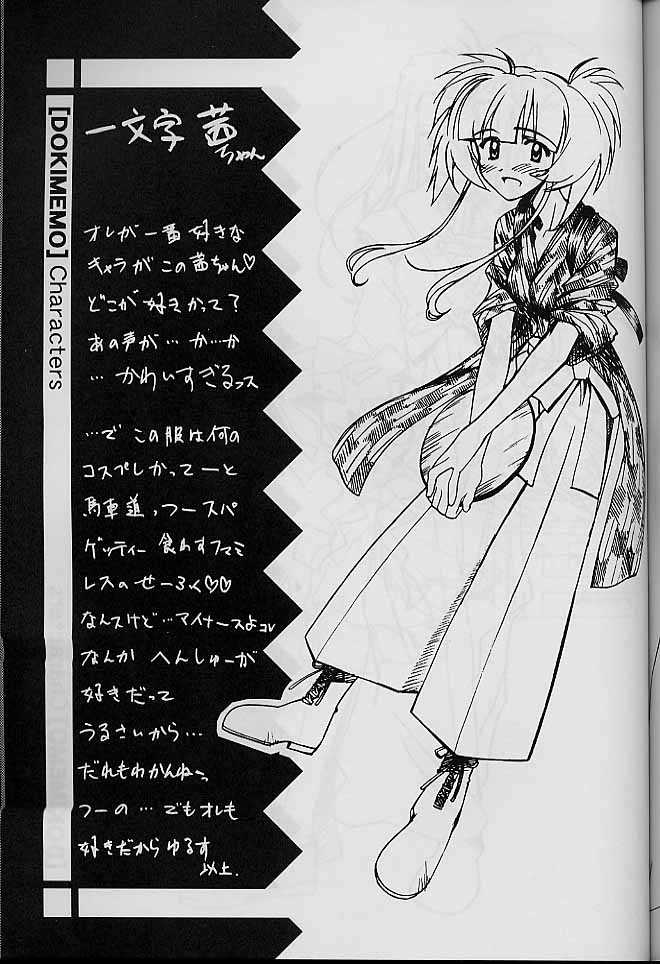 [DOKIMEMO] Characters
一文字 茜
ちゃん
オレが一番 好きな
キャラが この 茜ちゃん♡
どこが 好きかって?
あの声が … か…か
… かわいすぎるっス
…で この服は何の
コスプレかってーと
馬車道っつースパ
ゲッティー 食わすファミ
レスの せーふく♡♡
なんスけど…マイナースよコレ
なんか へんしゅーが
好きだって
うるさいから…
だれもわかんねーっ
つーの … でもオレも
好きだから ゆるす
以上.